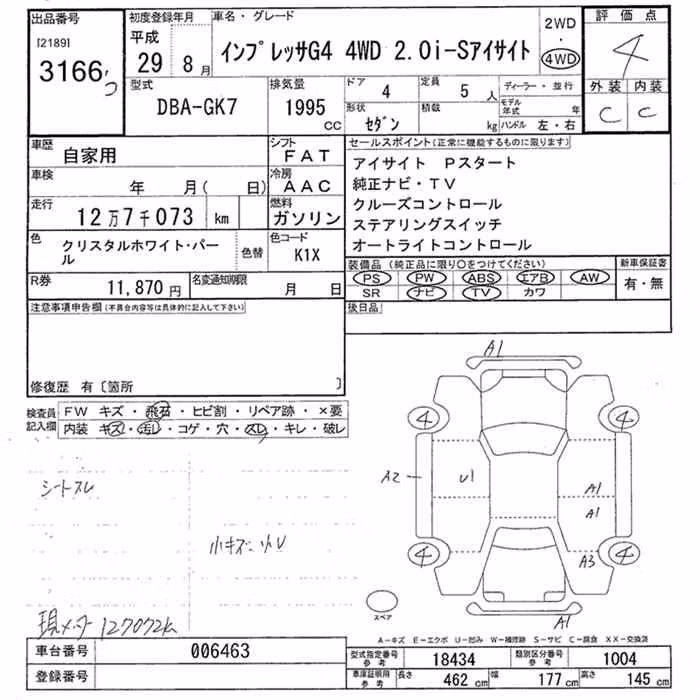 出品番号 初度登録年月 車名・グレード 2WD 評価点
[2189] 平成 ・ 4
3166 29 8月 インプレッサG4 4WD 2.0i-Sアイサイト 4WD
型式 排気量 ドア 4 定員 5人 ディーラー・並行 外装 内装
DBA-GK7 1995cc 形状 セダン 積載 kg モデル年式 年 C C
ハンドル 左・右
車歴 自家用 シフト FAT セールスポイント(正常に機能するものに限ります)
車検 年 月(日) 冷房 AAC アイサイト Pスタート
純正ナビ・TV
走行 12万7千073 km 燃料 ガソリン クルーズコントロール
ステアリングスイッチ
色 クリスタルホワイト・パール 色替 色コード K1X オートライトコントロール
装備品(純正品に限り○をつけてください) 新車保証書
R券 11,870円 名変通知期限 月 日 PS PW ABS エアB AW 有・無
SR ナビ TV カワ
注意事項申告欄(不具合内容等は具体的に記入して下さい) 後日品
修復歴 有〔箇所 〕
検査員 FW キズ・飛石・ヒビ割・リペア跡・×要
記入欄 内装 キズ・汚レ・コゲ・穴・スレ・キレ・破レ
A1
4 4
A2 U1 A1
A1
シートスレ
小キズ
4 4
A3
スペア
A1
現メーター127072k
A-キズ E-エクボ U-凹み W-補修跡 S-サビ C-腐食 XX-交換済
車台番号 006463 型式指定番号 参考 18434 類別区分番号 参考 1004
登録番号 車庫証明用 参考 長さ 462 cm 幅 177 cm 高さ 145 cm